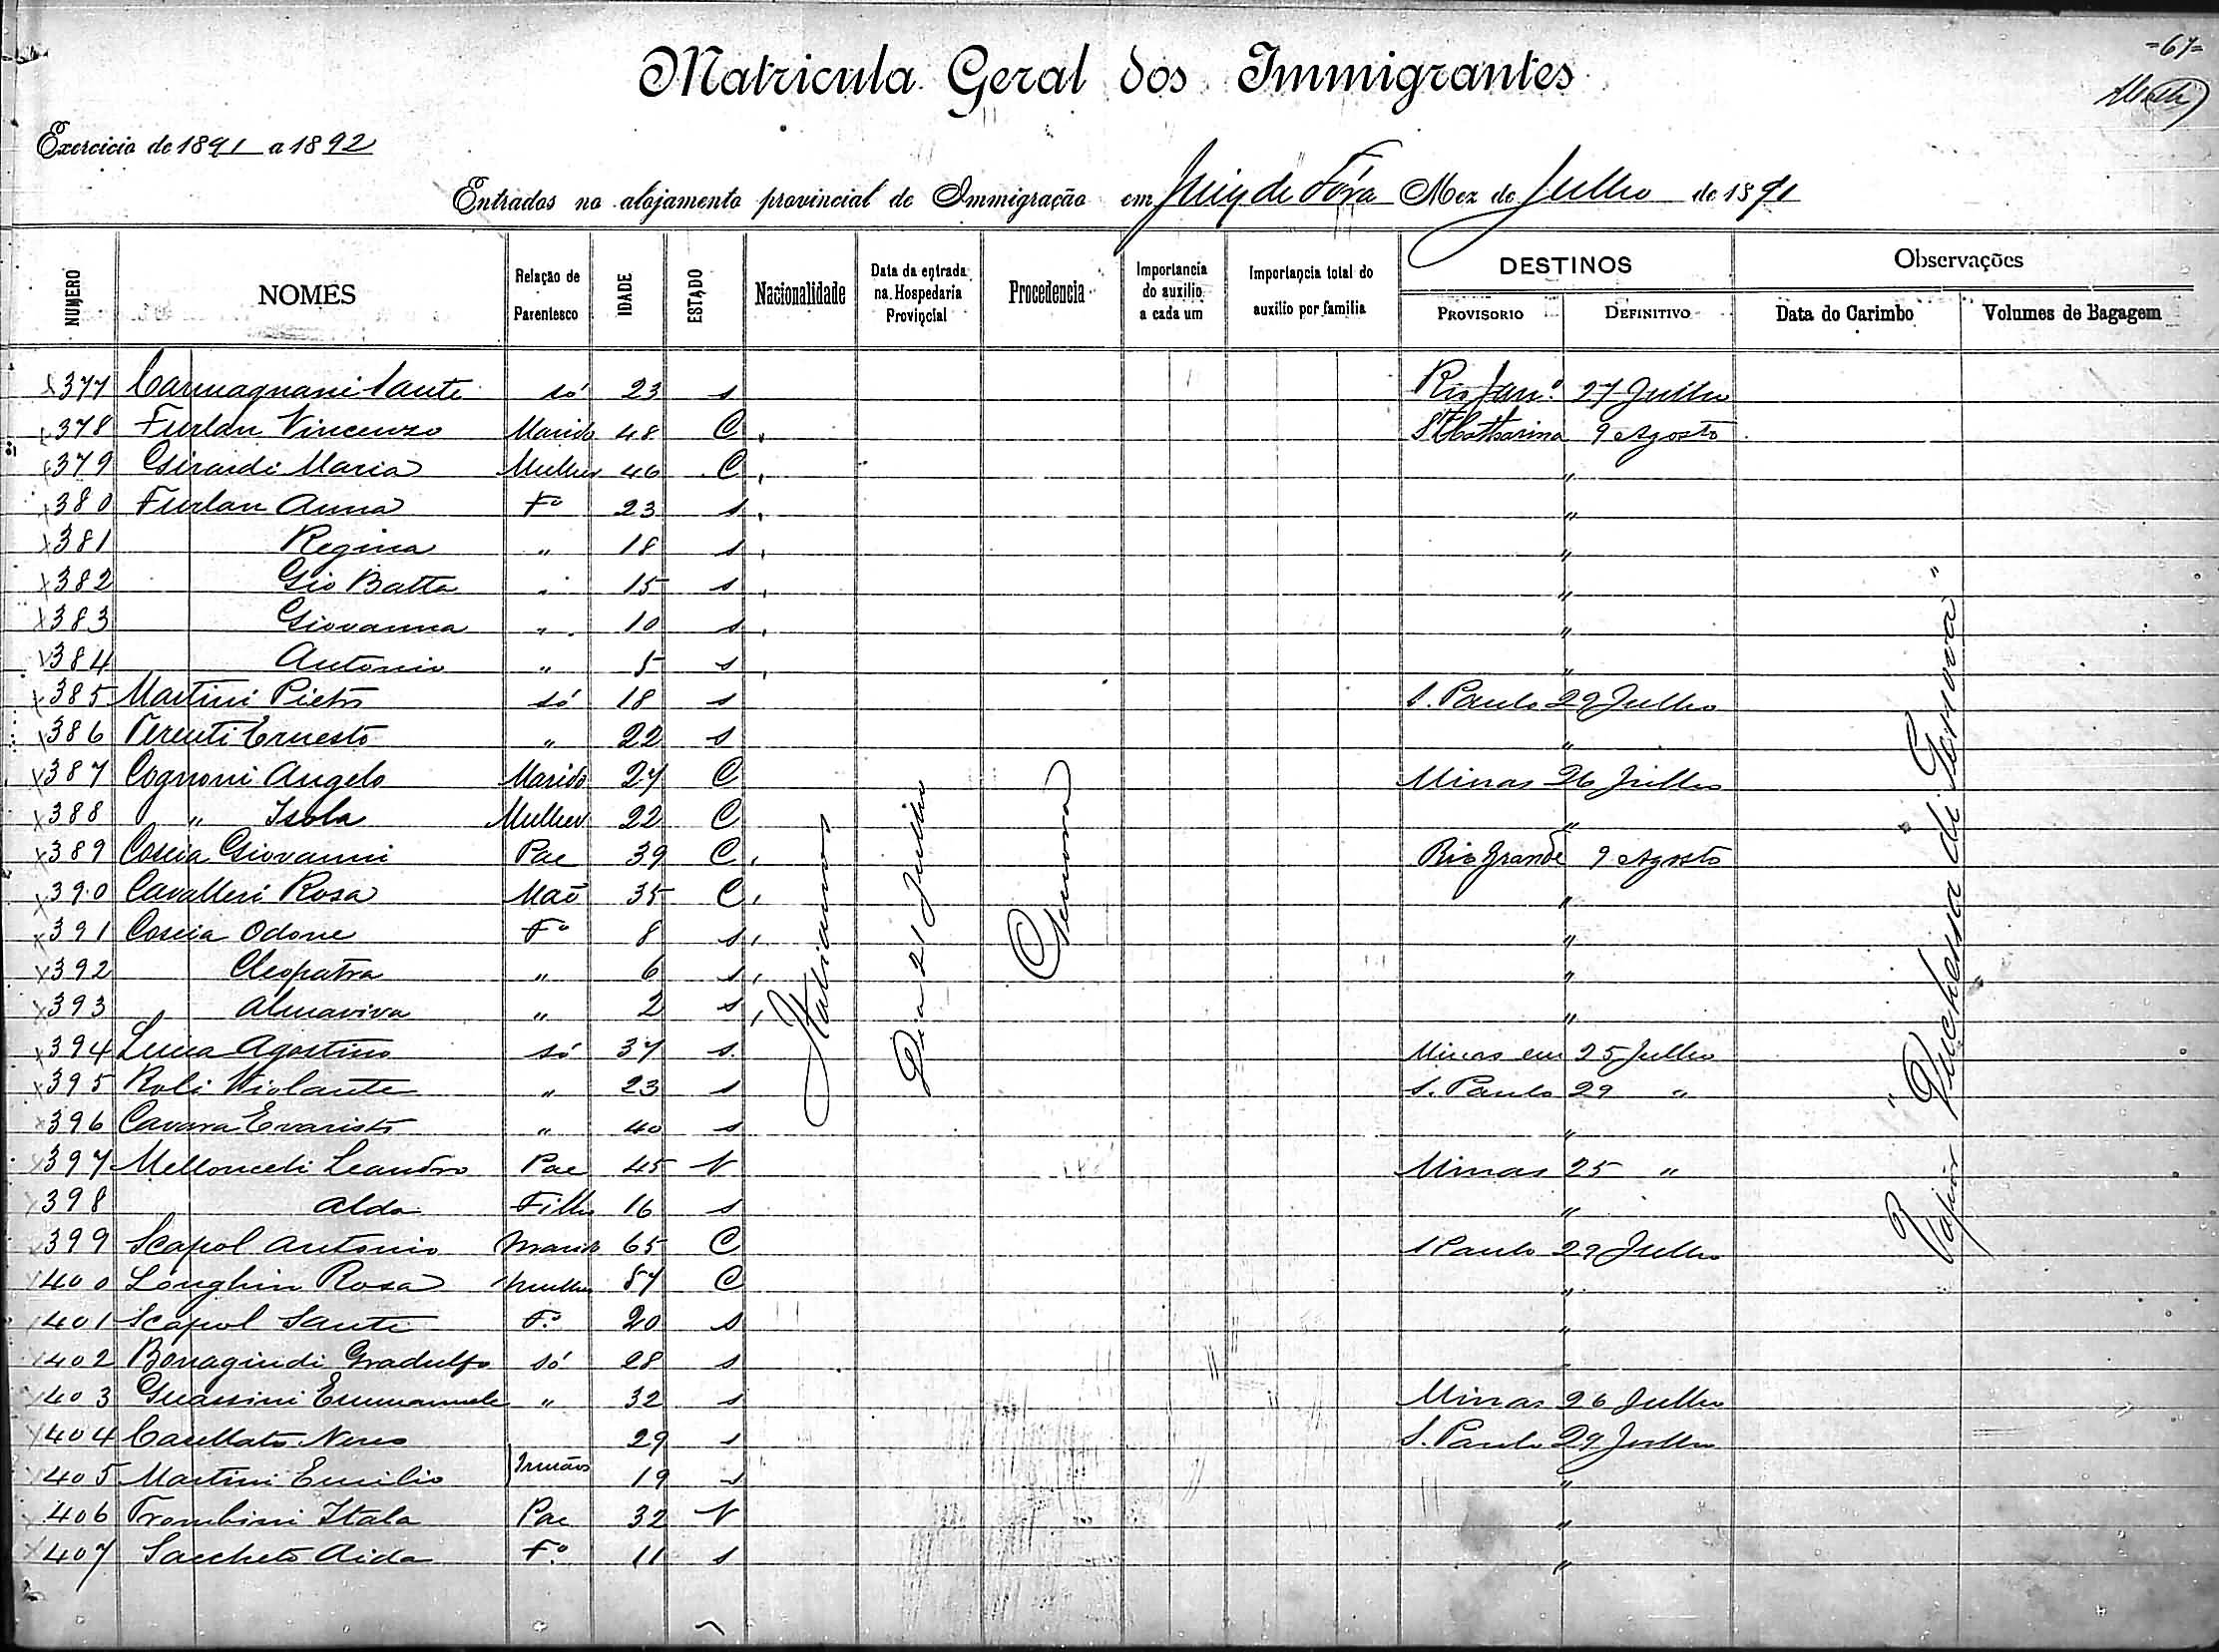 -67-
Matricula Geral dos Immigrantes
Exercicio de 1891 a 1892
Entrados no alojamento provincial de Immigração em Juiz de Fóra Mez de Julho de 1891
NUMERO NOMES Relação de Parentesco IDADE ESTADO Nacionalidade Data da entrada na Hospedaria Provincial Procedencia Importancia do auxilio a cada um Importancia total do auxilio por familia DESTINOS PROVISORIO DEFINITIVO Observações Data do Carimbo Volumes de Bagagem
377 Carmagnani Sante só 23 s Rio Janº 27 Julho
378 Furlan Vincenzo Marido 48 C Sta Catharina 9 Agosto
379 Girardi Maria Mulher 46 C "
380 Furlan Anna Fº 23 s "
381 Regina " 18 s "
382 Gio Batta " 15 s "
383 Giovanna " 10 s "
384 Antonio " 5 s "
385 Martini Pietro só 18 s S. Paulo 29 Julho
386 Ernesto " 22 s "
387 Cognoni Angelo Marido 27 C Minas 26 Julho
388 " Isola Mulher 22 C "
389 Coscia Giovanni Pae 39 C Rio Grande 9 Agosto
390 Cavalleri Rosa Mãe 35 C "
391 Coscia Odone Fº 8 s "
392 Cleopatra " 6 s "
393 Almaviva " 2 s "
394 Agostino só 37 s Minas em 25 Julho
395 Roli Violante " 23 s S. Paulo 29 "
396 Cavara Evaristo " 40 s "
397 Melloncelli Leandro Pae 45 V Minas 25 "
398 Aldo Filho 16 s "
399 Scapol Antonio Marido 65 C S Paulo 29 Julho
400 Longhin Rosa Mulher 57 C "
401 Scapol Sante Fº 20 s "
402 só 28 s "
403 Guassini Emmanuele " 32 s Minas 26 Julho
404 Nereo 29 s S. Paulo 29 Julho
Irmãos
405 Martini Emilio 19 s "
406 Trombini Itala Pae 32 V "
407 Saccheto Aida Fº 11 s "
Italianos
Dia 21 Julho
Genova
Vapor "Duchessa di Genova"